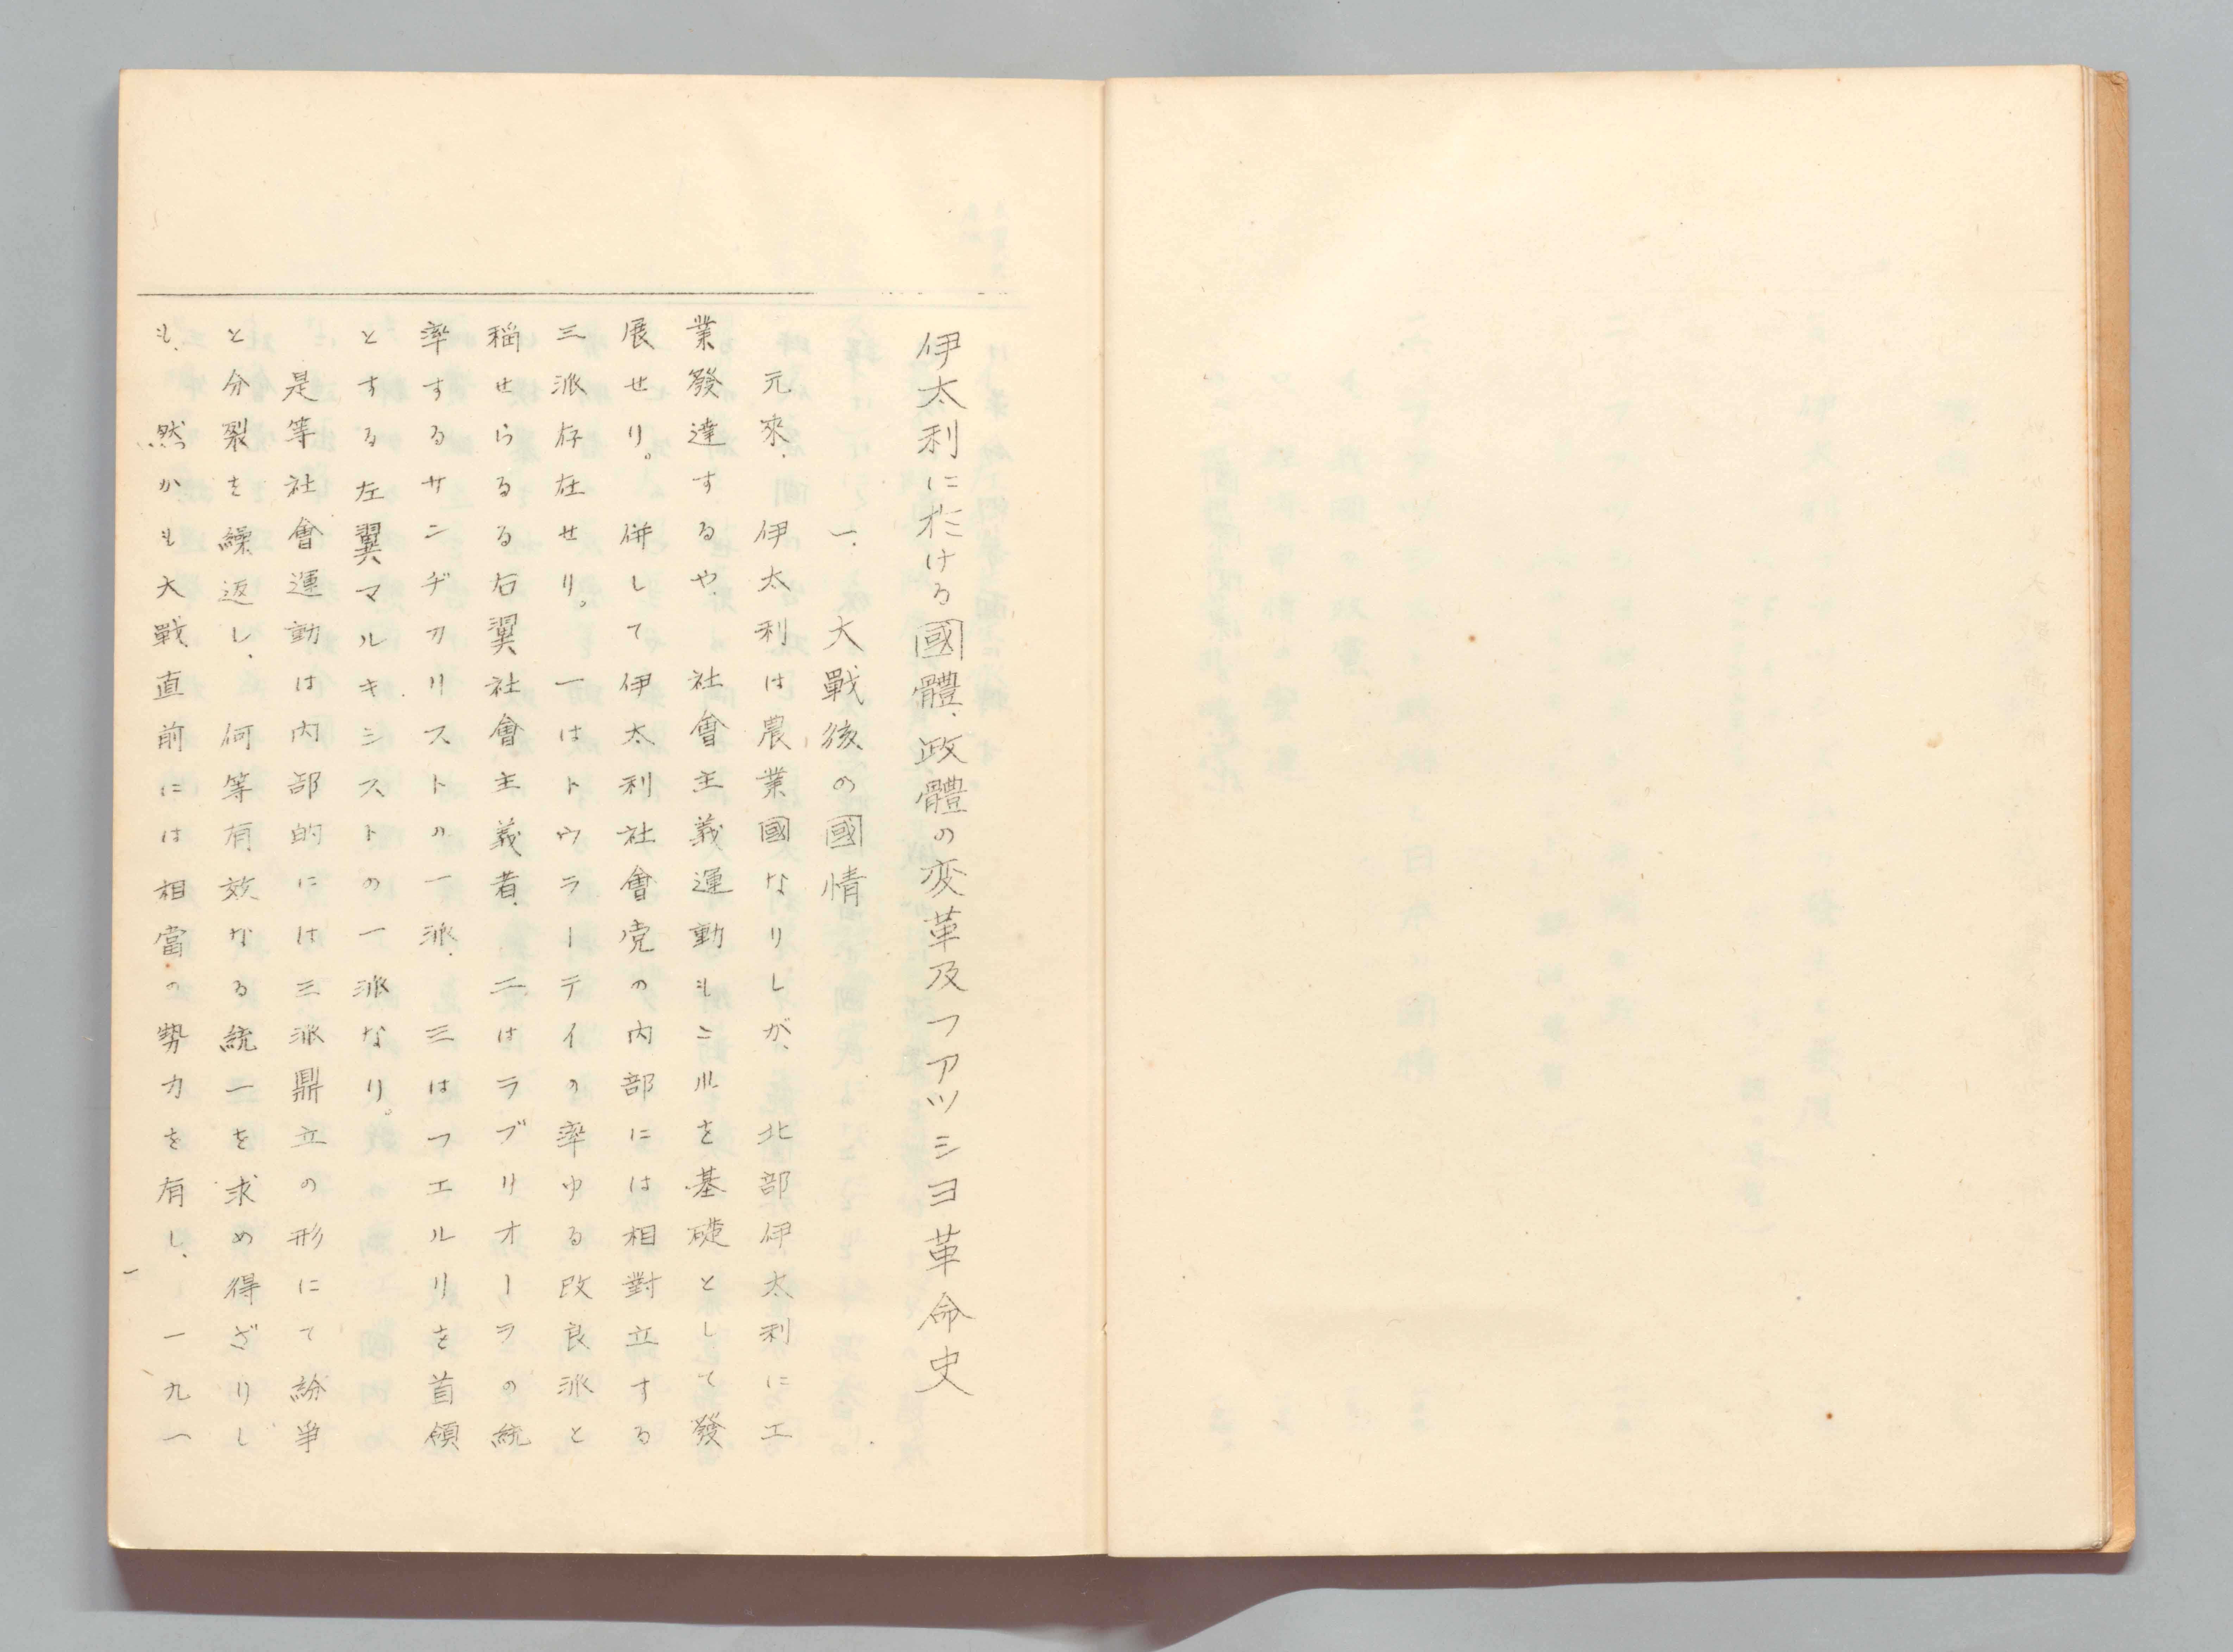 伊太利に於ける國體、政體の変革及フアツシヨ革命史
一、大戰後の國情
元來、伊太利は農業國なりしが、北部伊太利に工
業發達するや、社會主義運動もこれを基礎として發
展せり。併して伊太利社會党の内部には相對立する
三派存在せり。一はトウラーテイの率ゆる改良派と
稲せらるる右翼社會主義者、二はラブリオーラの統
率するサンヂカリストの一派、三はフエルリを首領
とする左翼マルキシストの一派なり。
是等社會運動は内部的には三派鼎立の形にて紛爭
と分裂を繰返し、何等有效なる統一を求め得ざりし
も、然かも大戰直前には相當の勢力を有し、一九一